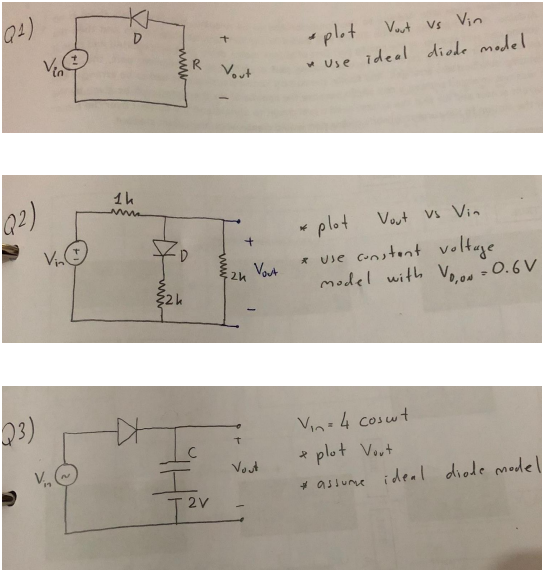 Q1)
D
Vin
+
-
R
+
Vout
-
* plot Vout vs Vin
* use ideal diode model
Q2)
1k
Vin
+
-
D
2k
2k
+
Vout
-
* plot Vout vs Vin
* use constant voltage
model with VD,ON = 0.6V
Q3)
Vin
~
C
2V
+
Vout
-
Vin = 4 coswt
* plot Vout
* assume ideal diode model